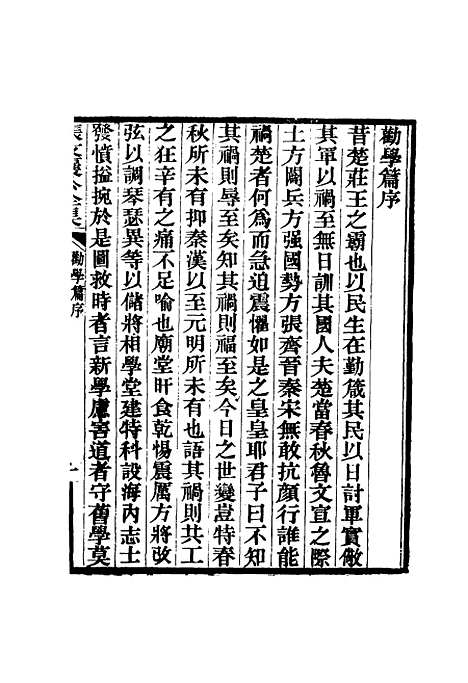 勸學篇序
昔楚莊王之霸也以民生在勤箴其民以日討軍實儆
其軍以禍至無日訓其國人夫楚當春秋魯文宣之際
土方闢兵方强國勢方張齊晉秦宋無敢抗顏行誰能
禍楚者何爲而急迫震懼如是之皇皇耶君子曰不知
其禍則辱至矣知其禍則福至矣今日之世變豈特春
秋所未有抑秦漢以至元明所未有也語其禍則共工
之狂辛有之痛不足喻也廟堂旰食乾惕震厲方將改
弦以調琴瑟異等以儲將相學堂建特科設海內志士
發憤搤捥於是圖救時者言新學慮害道者守舊學莫
勸學篇序
一